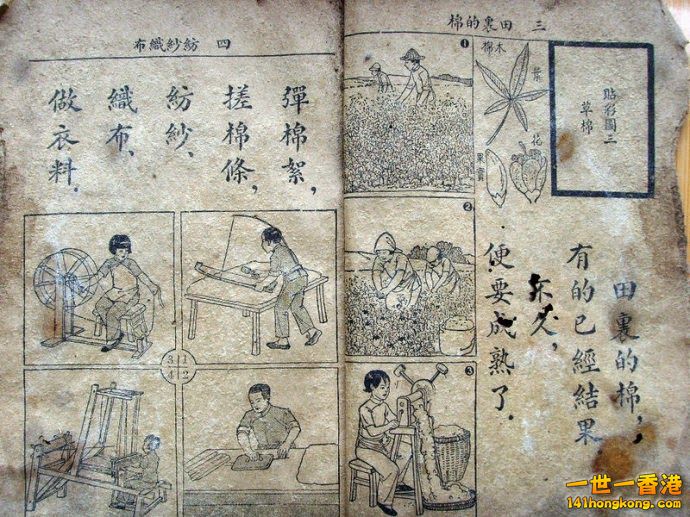 三 田裏的棉
貼彩圖三
草棉
木棉
葉
花
果實
田裏的棉，
有的已經結果
不久，
便要成熟了．
1
2
3
四 紡紗織布
彈棉絮，
搓棉條，
紡紗，
織布，
做衣料．
3 1
4 2
一世一香港
141hongkong.com